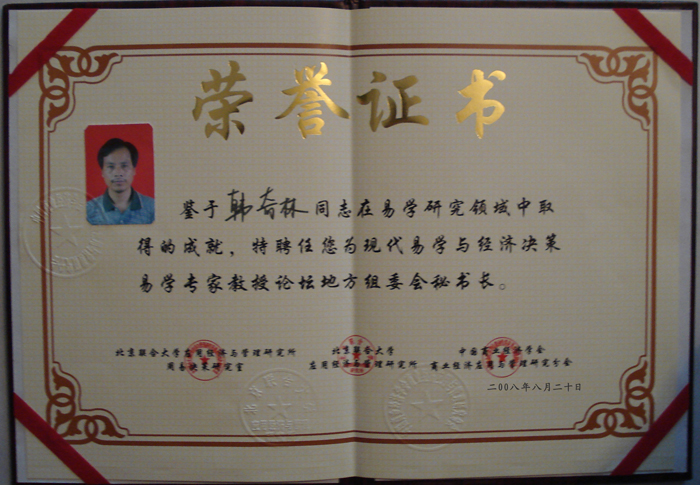 荣誉证书
鉴于韩奇林同志在易学研究领域中取
得的成就，特聘任您为现代易学与经济决策
易学专家教授论坛地方组委会秘书长。
北京联合大学应用经济与管理研究所
周易决策研究室
北京联合大学
应用经济与管理研究所
中国商业经济学会
商业经济应用与管理研究分会
二00八年八月二十日